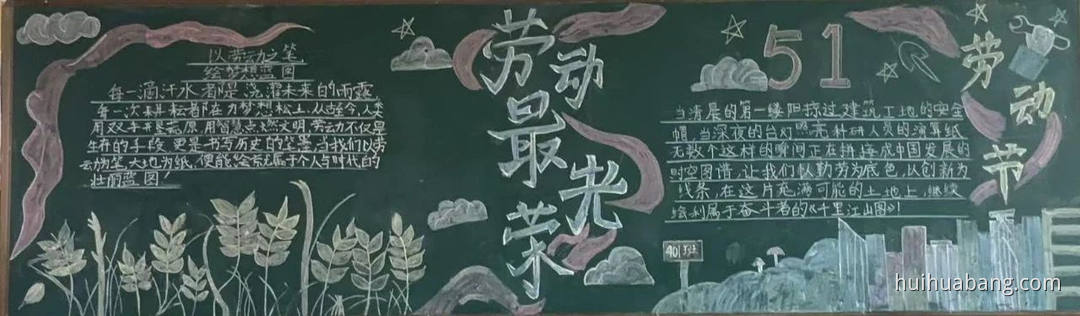 以劳动之笔
绘梦想蓝图
每一滴汗水都是浇灌未来的雨露
每一次耕耘都在为梦想松土.从古至今,人类
用双手开垦荒原,用智慧点燃文明,劳动不仅是
生存的手段,更是书写历史的笔墨.当我们以劳
动为笔,大地为纸,便能绘就属于个人与时代的
壮丽蓝图!
劳动
最
光
荣
51
劳动节
当清晨的第一缕阳掠过建筑工地的安全
帽,当深夜的台灯照亮科研人员的演算纸
无数个这样的瞬间正在拼接成中国发展的
时空图谱.让我们以勤劳为底色,以创新为
线条,在这片充满可能的土地上,继续
绘制属于奋斗者的《千里江山图》!
401班
huihuabang.com